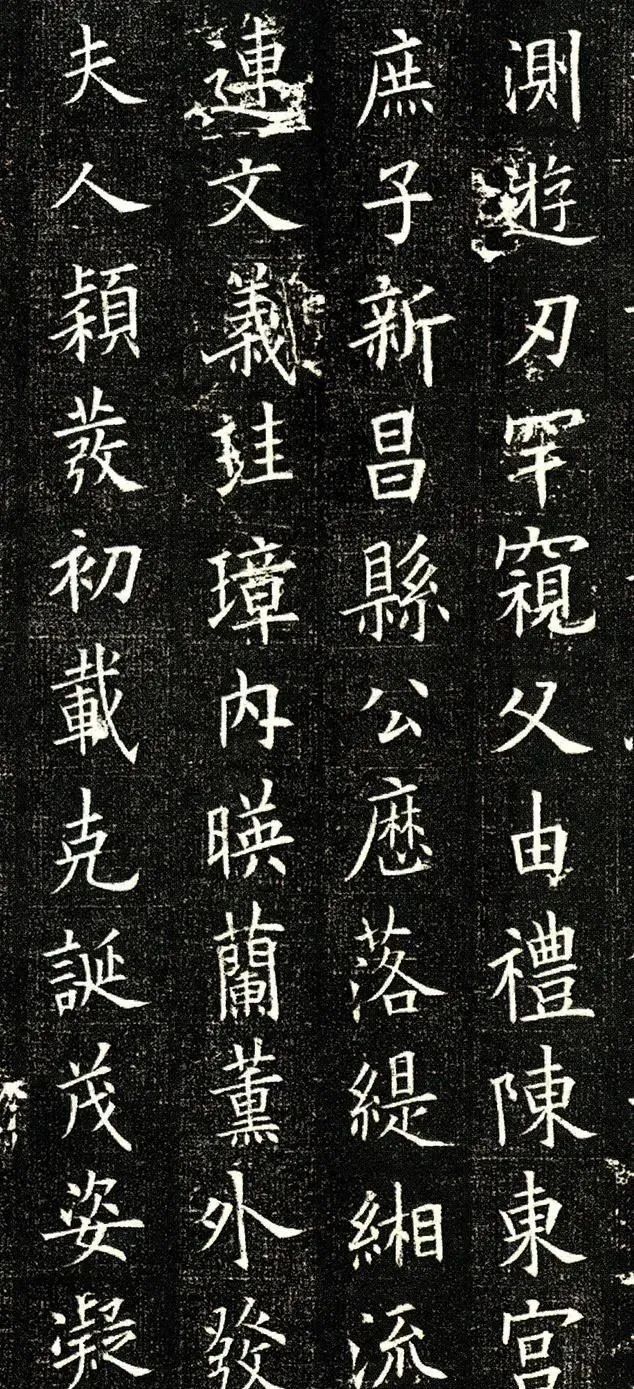 測遊刃罕窺父由禮陳東宮
庶子新昌縣公歷落緹緗流
連文義珪璋内暎蘭薰外發
夫人穎發初載克誕茂姿凝